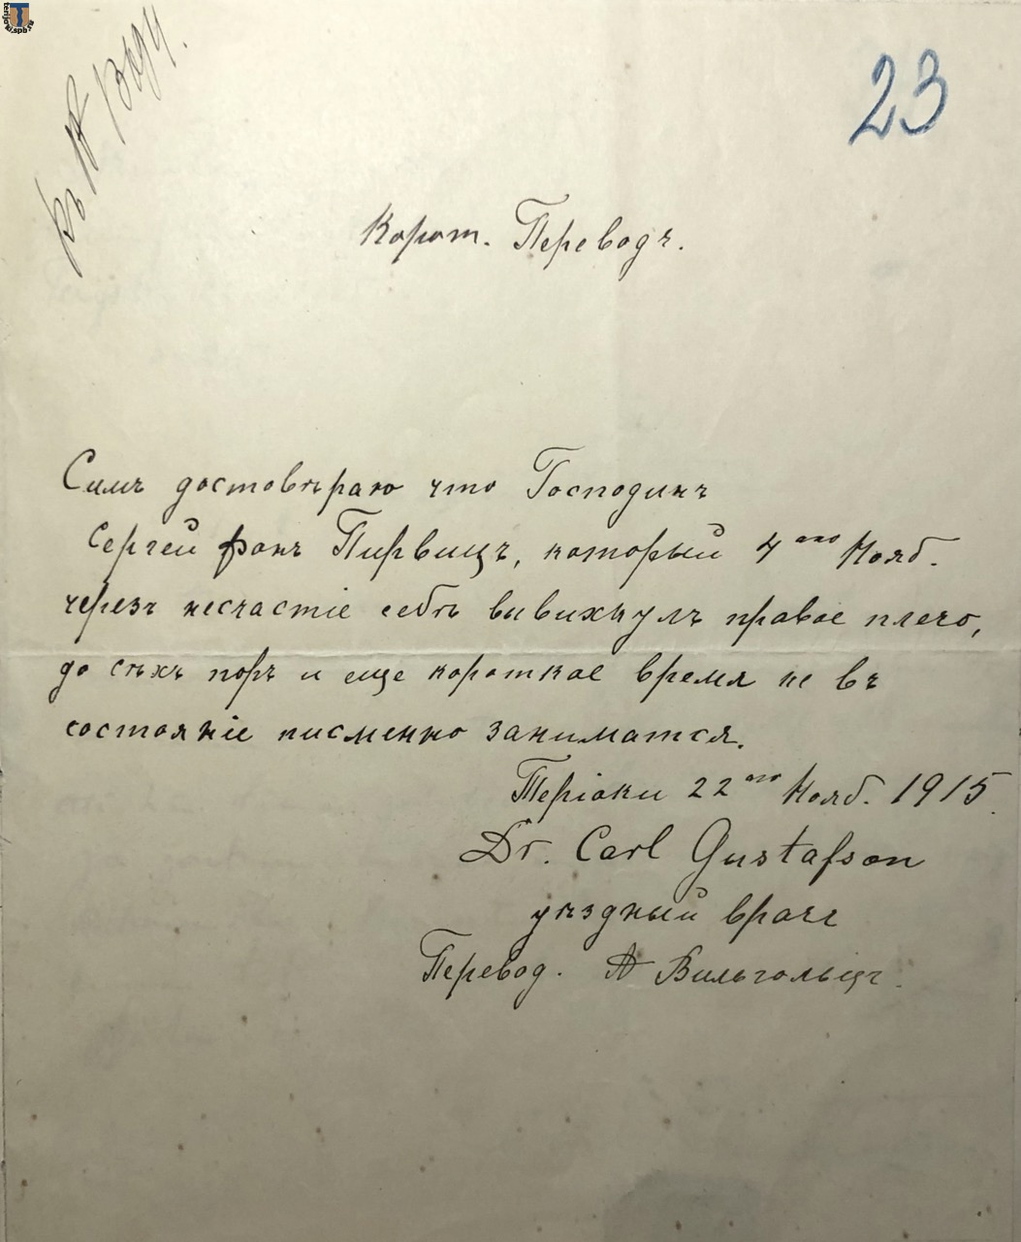 23
Корот. Переводъ.
Симъ достовѣраю что Господинъ
Сергей фонъ Пирвицъ, который 7 ого Нояб.
черезъ несчастіе себѣ вывихнулъ правое плечо,
до сѣхъ поръ и еще короткое время не въ
состояніе писменно заниматся.
Теріоки 22 ого Нояб. 1915.
Dr. Carl Gustafson
уѣздный врачъ
Перевод. А Вильгольцъ.